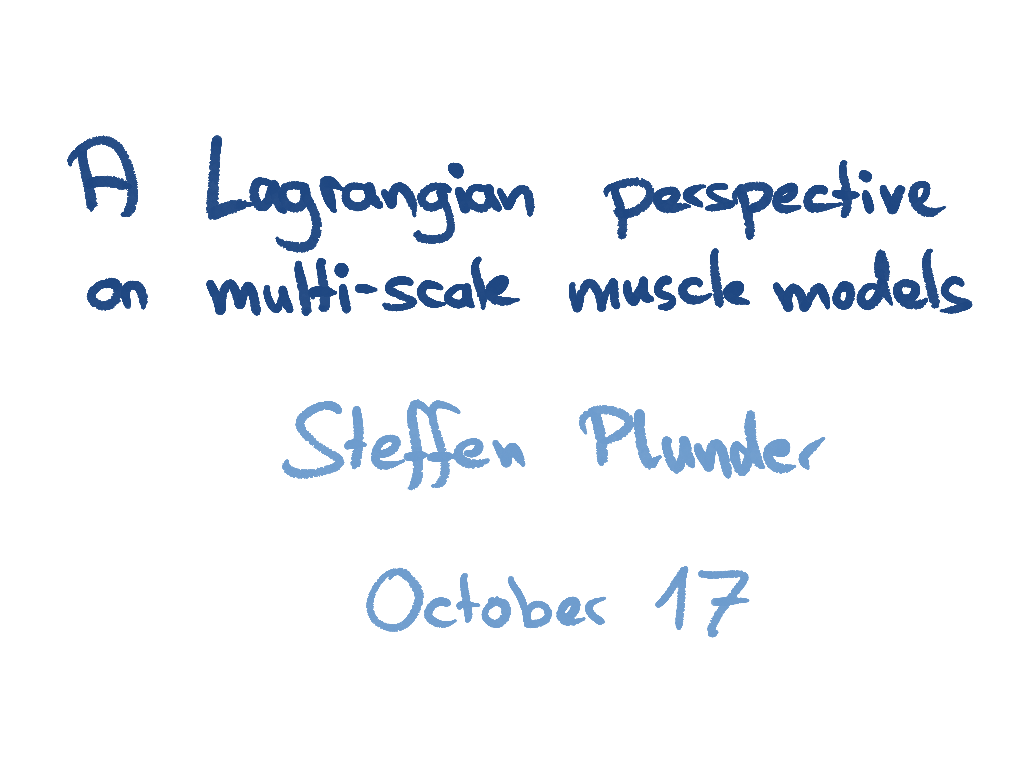 A Lagrangian perspective
on multi-scale muscle models
Steffen Plunder
October 17